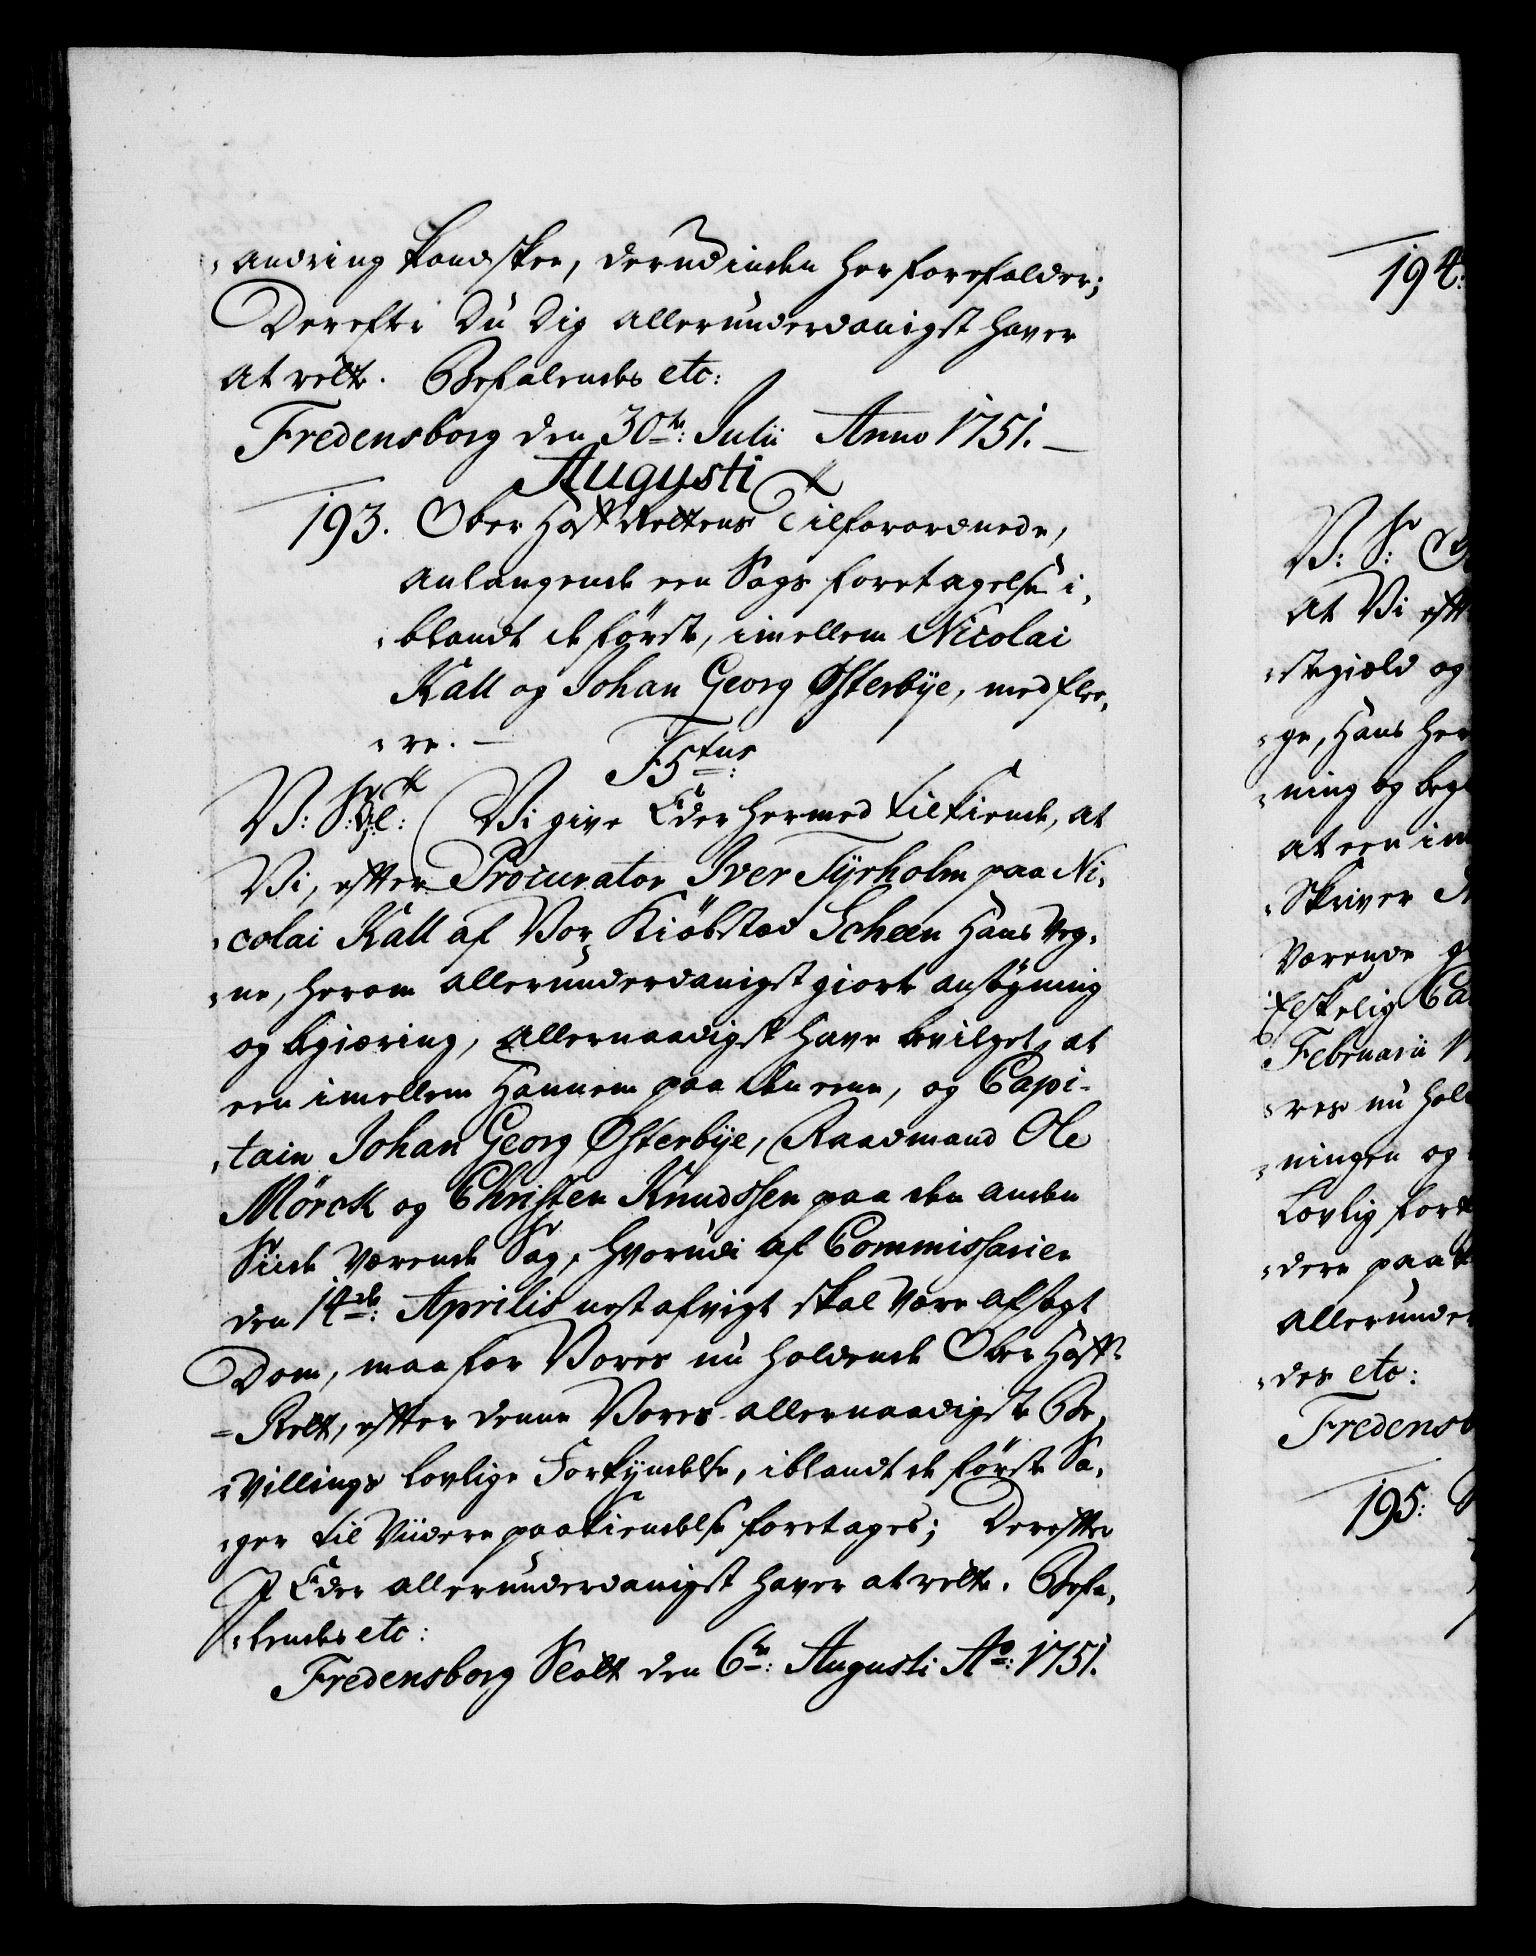 andring kand skee, dersom inden her forefalder;
Derefter Du Dig allerunderdanigst haver
at rette. Befalendes etc:
Fredensborg den 30te: Julii Anno 1751.
Augusti
193. Ober Hof Rettens Tilforordnede,
anlangende een Sags foretagelse i-
blandt de förste, imellem Nicolai
Kall og Johan Georg Østerbÿe, med flee-
re.
F5tus
V: S: Vi give Eder hermed tilkiende, at
Vi, efter Procurator Iver Tÿrholm paa Ni-
colai Kall af Vor Kiöbstad Scheen Hans Veg-
ne, herom allerunderdanigst giorte ansögning
og begiæring, allernaadigst have bevilget, at
een imellem Hannem paa den eene, og Capi-
tain Johan Georg Østerbÿe, Raadmand Ole
Mörck og Christen Knudssen paa den anden
Siide værende Sag, hvorudi af Commissarier
den 14de: Aprilis nest afvigt skal være afsagt
Dom, maa for Vores nu holdende Ober Hof-
Rett, efter denne Vores allernaadigste Be-
villings lovlige Forkÿndelse, iblandt de förste Sa-
ger til Viidere paakiendelse foretages; Derefter
I Eder allerunderdanigst haver at rette. Befa-
lendes etc:
Fredensborg Slott den 6te: Augusti Ao: 1751.
194:
V: S:
At Vi eft
stegield og
ge, Hans her
ning og beg
at een im
Skriver
værende
Elskelig Ca
Februarii
res nu hol
ningen og
Lovlig fork
dere paa
allerunder
des etc:
Fredensb
195: